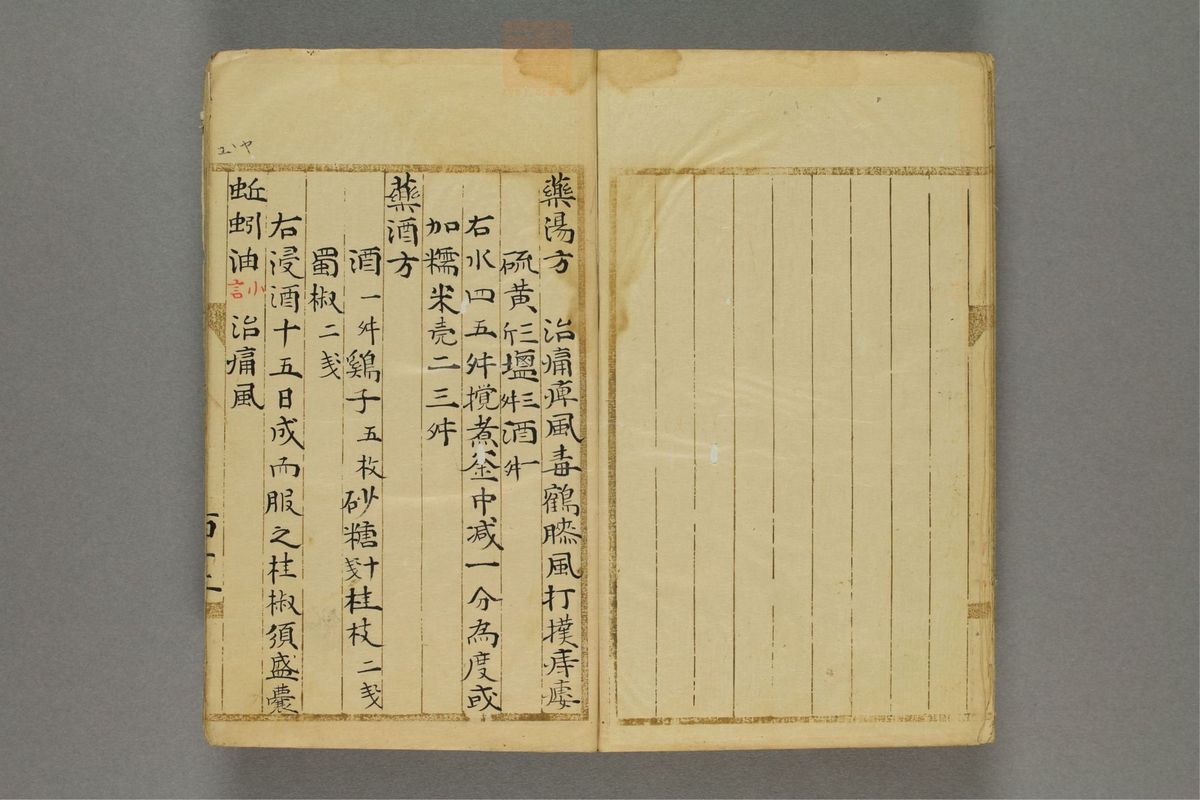 藥湯方　治痛痺風毒鶴膝風打撲痺痿
硫黄三斤塩三升酒一升
右水四五升攪煮釜中减一分為度或
加糯米壳二三升
藥酒方
酒一升鷄子五枚砂糖十戔桂枝二戔
蜀椒二戔
右浸酒十五日成而服之桂椒須盛囊
蚯蚓油小言治痛風